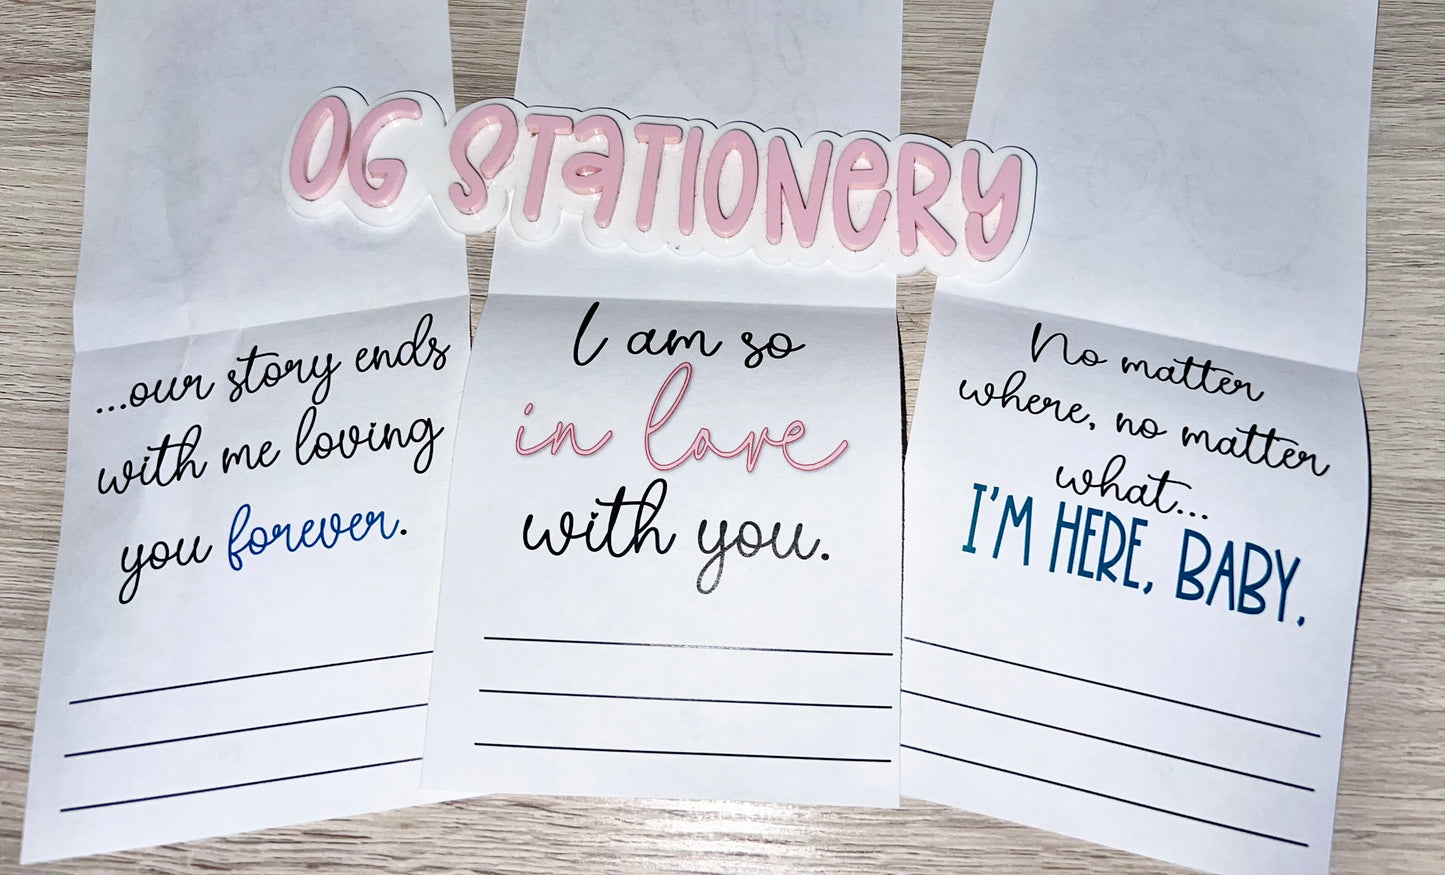 OG STATIONERY
...our story ends
with me loving
you forever.
I am so
in love
with you.
No matter
where, no matter
what...
I'M HERE, BABY.